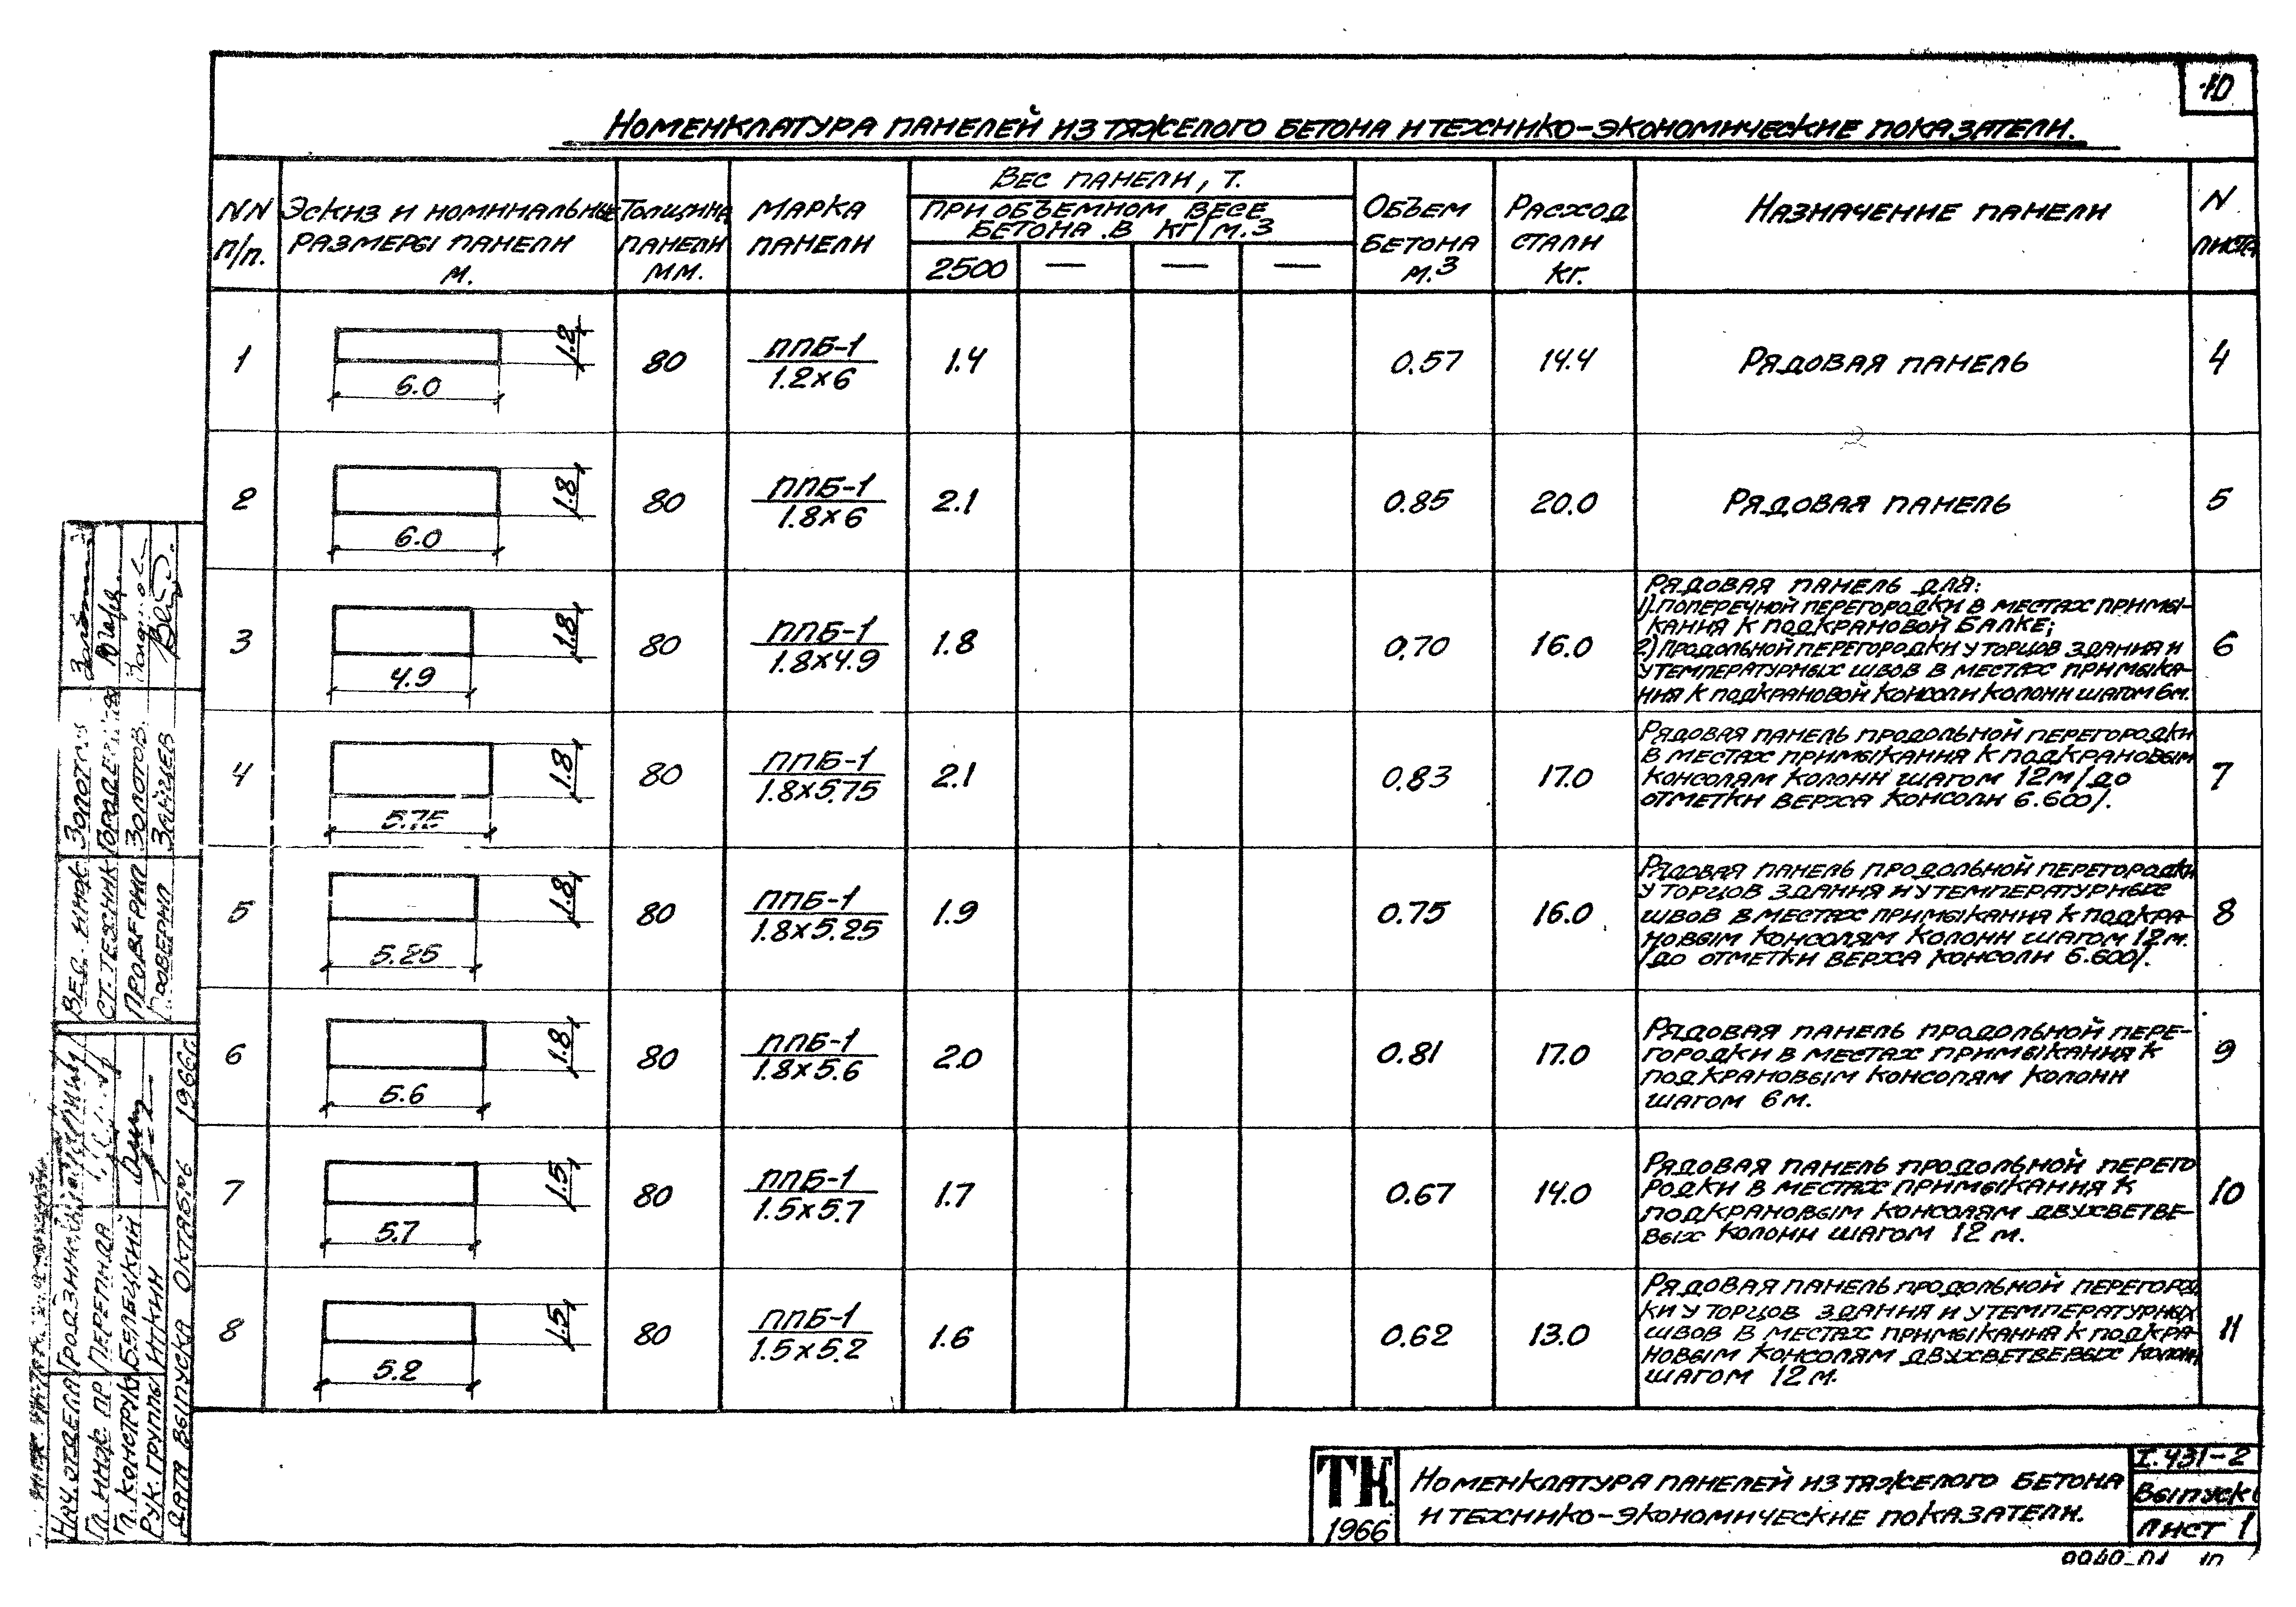 10
Номенклатура панелей из тяжелого бетона и технико-экономические показатели.
NN п/п.
Эскиз и номинальные размеры панели м.
Толщина панели мм.
Марка панели
Вес панели, т.
при объемном весе
бетона в кг/м.3
2500 — — —
Объем бетона м.3
Расход стали кг.
Назначение панели
N листа
1 6.0 1.2 80 ППБ-1 1.2×6 1.4 0.57 14.4 Рядовая панель 4
2 6.0 1.8 80 ППБ-1 1.8×6 2.1 0.85 20.0 Рядовая панель 5
3 4.9 1.8 80 ППБ-1 1.8×4.9 1.8 0.70 16.0
Рядовая панель для:
1).поперечной перегородки в местах примы-
кания к подкрановой балке;
2) продольной перегородки у торцов здания и
у температурных швов в местах примыка-
ния к подкрановой консоли колонн шагом 6м.
6
4 5.75 1.8 80 ППБ-1 1.8×5.75 2.1 0.83 17.0
Рядовая панель продольной перегородки
в местах примыкания к подкрановым
консолям колонн шагом 12м /до
отметки верха консоли 6.600/.
7
5 5.25 1.8 80 ППБ-1 1.8×5.25 1.9 0.75 16.0
Рядовая панель продольной перегородки
у торцов здания и у температурных
швов в местах примыкания к подкра-
новым консолям колонн шагом 12м.
/до отметки верха консоли 6.600/.
8
6 5.6 1.8 80 ППБ-1 1.8×5.6 2.0 0.81 17.0
Рядовая панель продольной пере-
городки в местах примыкания к
подкрановым консолям колонн
шагом 6м.
9
7 5.7 1.5 80 ППБ-1 1.5×5.7 1.7 0.67 14.0
Рядовая панель продольной перего
родки в местах примыкания к
подкрановым консолям двухветве-
вых колонн шагом 12м.
10
8 5.2 1.5 80 ППБ-1 1.5×5.2 1.6 0.62 13.0
Рядовая панель продольной перегород
ки у торцов здания и у температурных
швов в местах примыкания к подкра-
новым консолям двухветвевых колонн
шагом 12м.
11
ТК
1966
Номенклатура панелей из тяжелого бетона
и технико-экономические показатели.
I.431-2
Выпуск 1
Лист 1
Вес. инж.
ст. техник
проверил Золотов.
Проверил Зайцев
Нач. отдела
Гл. инж. пр Перепида
Гл. конструк Белецкий
Рук. группы Иткин
Дата выпуска октябрь 1966г.